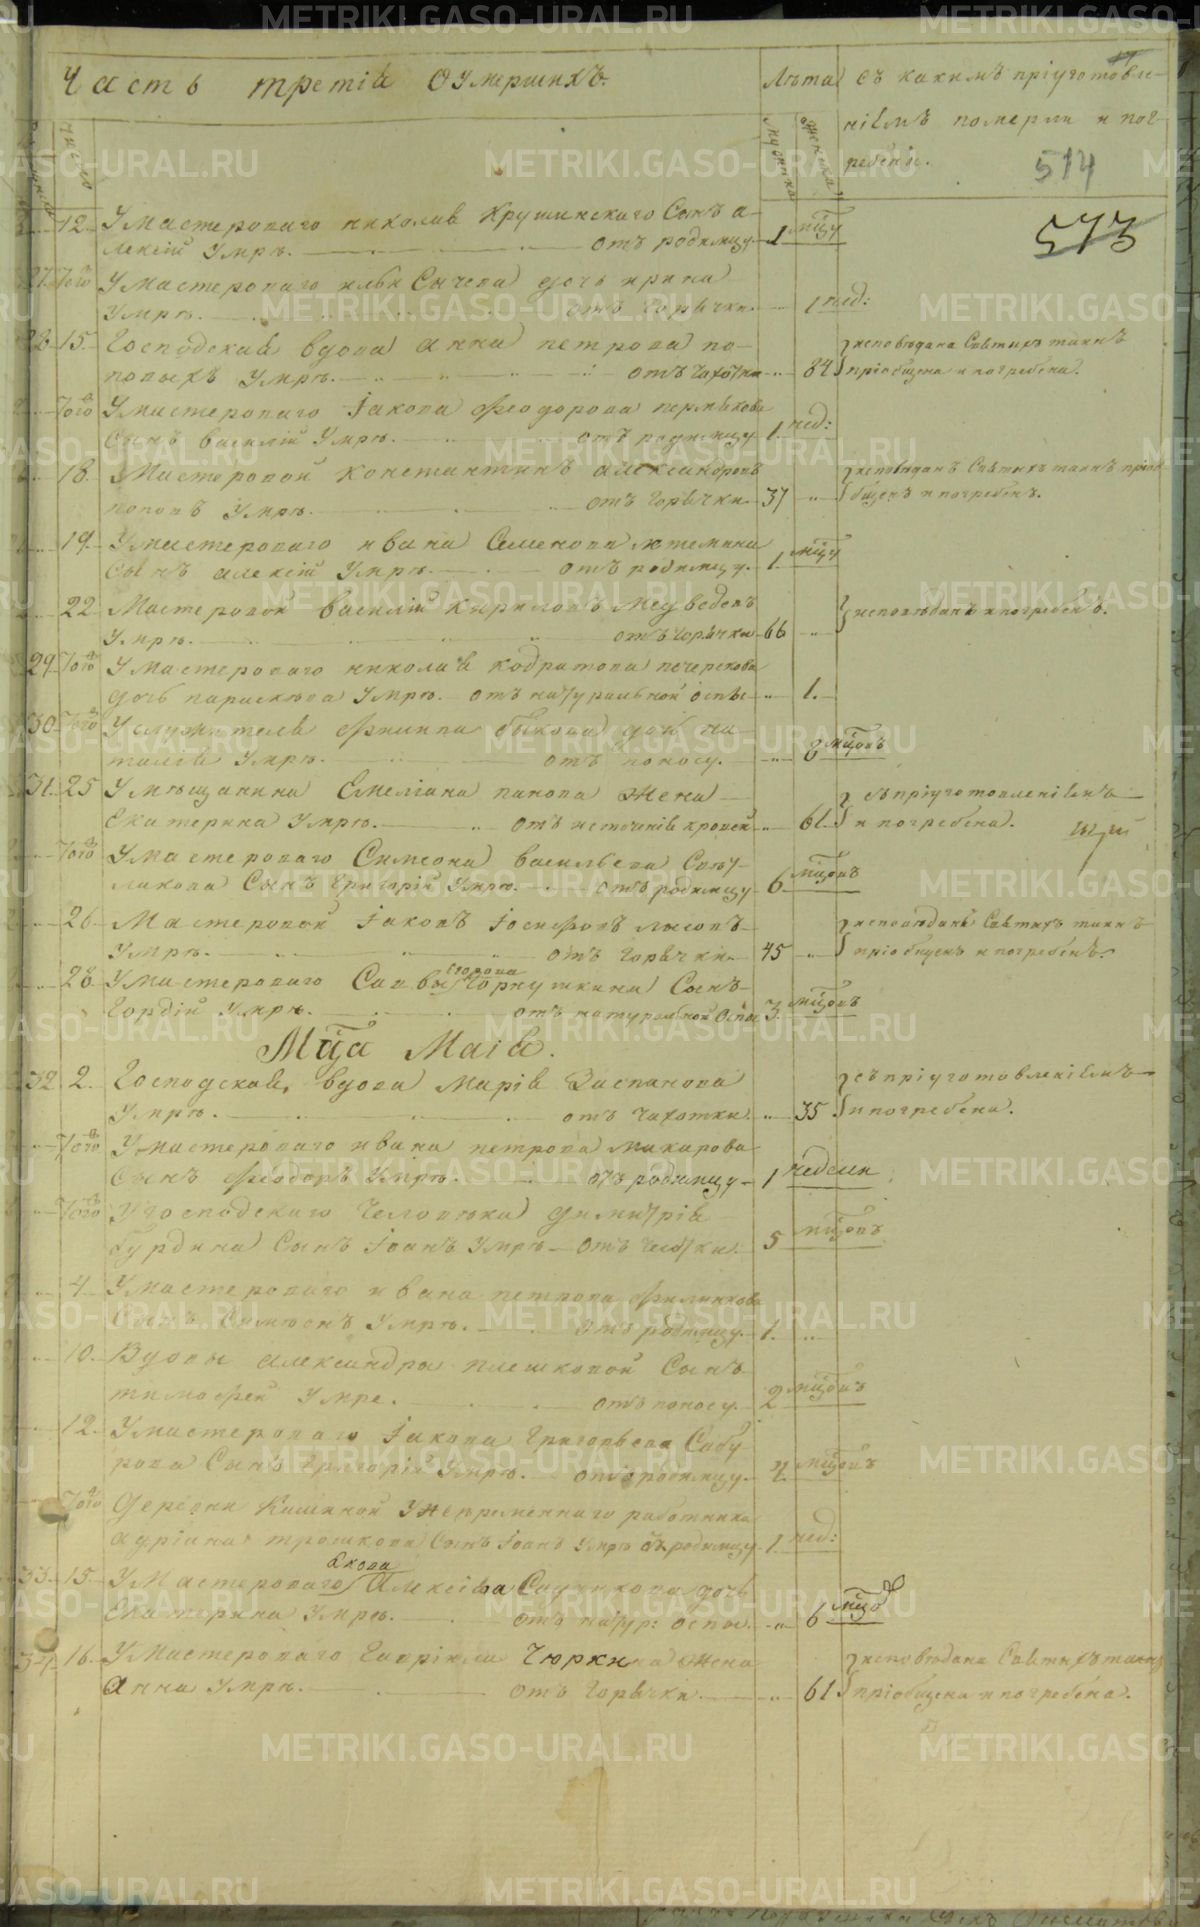 Часть третія Оумершихъ.
Лѣта
съ какимъ пріуготовле-
ніемъ померли и пог-
ребены.
число
514
573
12. У Мастероваго николая Крушинскаго Сынъ а-
лексій Умре. отъ родимцу 1 мцу
27. Того У Мастероваго ильи Сычева дочь ирина
Умре. отъ горячки 1 нед:
28. 15. Господская вдова анна петрова по-
повыхъ Умре. отъ чахотки 84 исповѣдана Святыхъ таинъ
пріобщена и погребена.
Того У Мастероваго Іакова феодорова пермякова
Сынъ василій Умре. отъ родимцу 1. нед:
18. Мастеровой константинъ александровъ
поповъ Умре. отъ горячки 37 исповѣданъ Святыхъ таинъ пріоб
бщенъ и погребенъ.
19. У Мастероваго ивана Семенова
Сынъ алексій Умре. отъ родимцу. 1. мцу
22. Мастеровой василій кириловъ медведевъ
Умре. отъ горячки 66 исповѣданъ и погребенъ.
29. Того У Мастероваго николая кодратова печерскова
дочь параскева Умре. отъ натуральной оспы 1.
30. Того У служителя филипа быкова дочь на-
талія Умре. отъ поносу. 8 мцовъ
31. 25 У мещанина Емеліана панова жена
Екатерина Умре. отъ источнія кровей 61. съ пріуготовленіемъ
и погребена.
Того У Мастероваго Симеона васильева
Сынъ григорій Умре. отъ родимцу 6 мцовъ
26. Мастеровой Іаковъ Іосифовъ лысовъ
Умре. отъ горячки 45 исповѣданъ Святыхъ таинъ
пріобщенъ и погребенъ.
28 У Мастероваго Саввы Егорова Горкушкина Сынъ
Гордій Умре. отъ натуральной Оспы 3. мцовъ
Мца Маія.
32. 2. Господская вдова Марія
Умре. отъ чахотки. 35 съ пріуготовленіемъ
и погребена.
Того У Мастероваго ивана петрова макарова
Сынъ феодоръ Умре. отъ родимцу 1 недели
Того У господскаго человека димитрія
бурдина Сынъ Іоанъ Умре отъ чесотки. 5 мцовъ
4. У Мастероваго ивана петрова филинкова
Сынъ Симеонъ Умре. отъ родимцу. 1.
10. Вдовы александры плешковой Сынъ
тимофей Умре. отъ поносу. 2 мцовъ
12. У Мастероваго Іакова Григорьева Сабу-
рова Сынъ Григорій Умре. отъ родимцу. мцовъ
Того Деревни Калинной У непременнаго работника
адріана трошкова Сынъ Іоанъ Умре отъ родимцу 1 нед:
33. 15. У Мастероваго Якова Алексіева Садчикова дочь
Екатерина Умре. отъ натур: оспы. 6 мцо
34. 16. У Мастероваго гавріила Чюркина жена
Анна Умре. отъ горячки 61 исповѣдана Святыхъ таинъ
пріобщена и погребена.